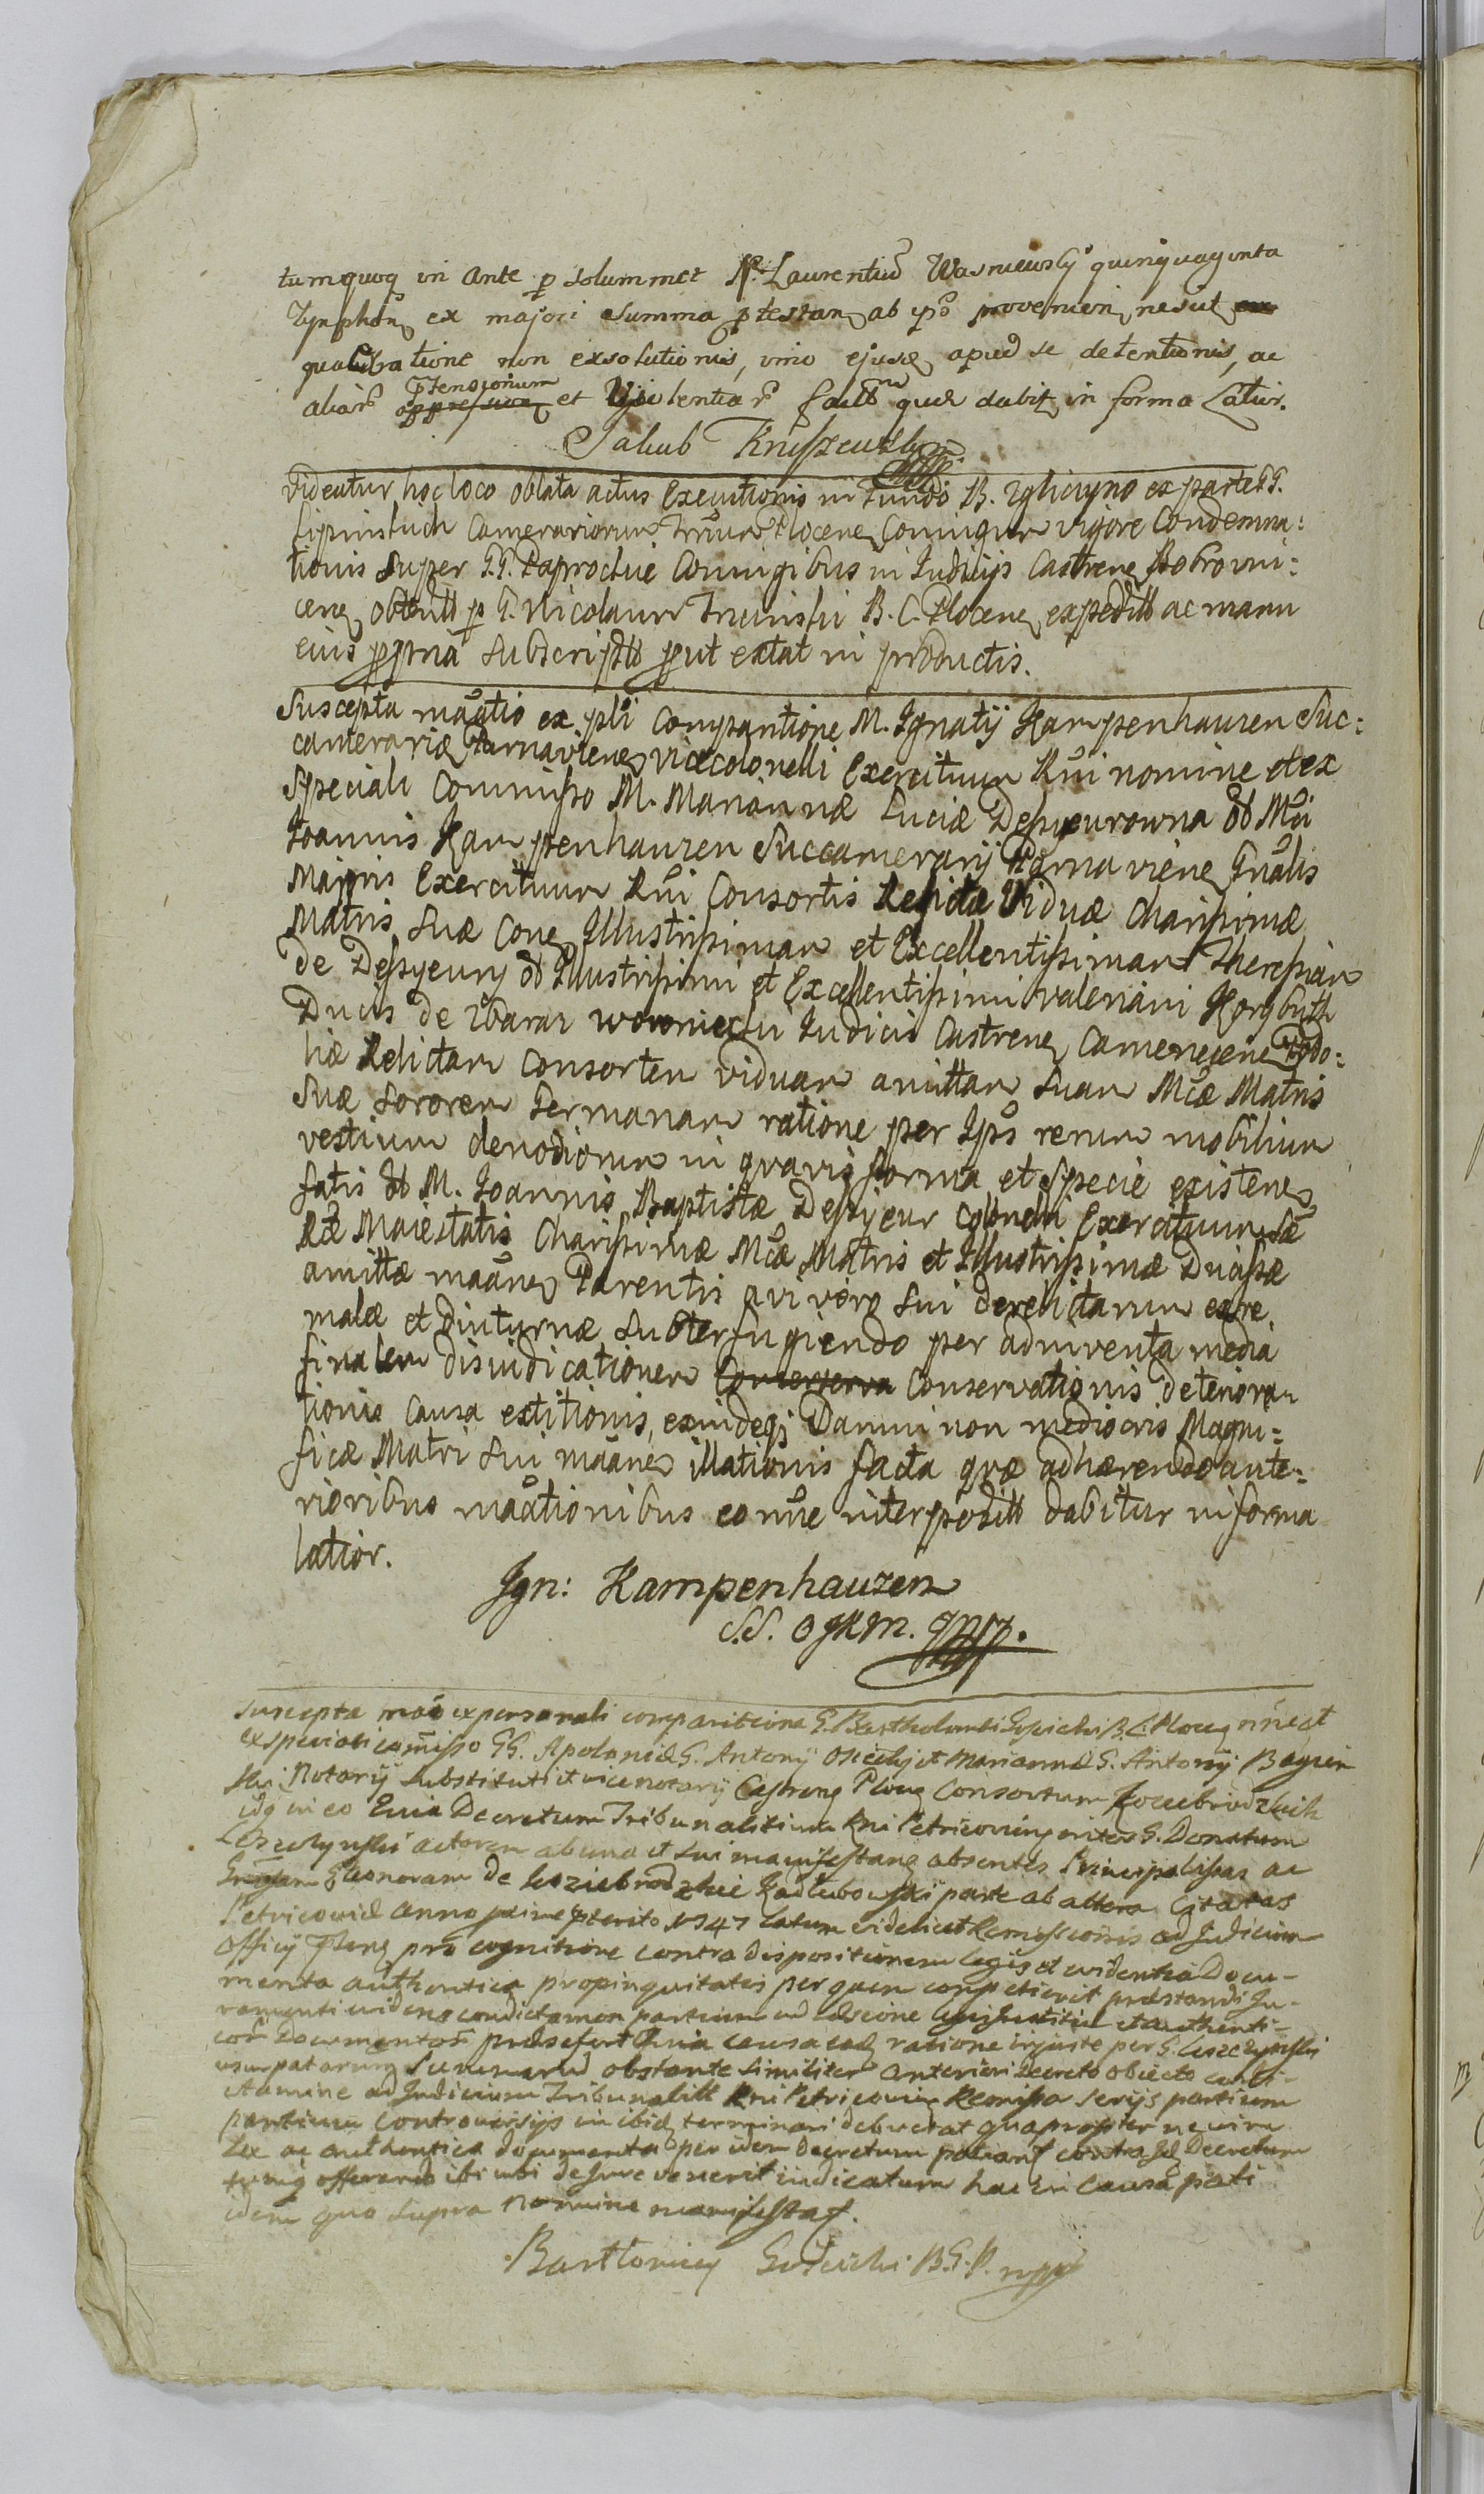 tumquoq in ante p solummet N. Laurentiū Wasniewsky quinquaginta
Tynphōn ex majori summa ptestan ab ipō provenien nesut
qualibratione non exsolutionis, imo ejusq apud se detentionis, ac
aliar̃ ptensorium et Vjolentiar̃ factt quæ dabit in forma Latior.
Jakub Kruszewsky
Videatur hoc loco oblata actus Executionis in Fundo B. Zgliczyno ex parte GG.
Lipinskich Camerariorum Trrum Plocenę Coniugum vigore Condemna:
tionis super GG. Paprockie Coniugibus in Judicijs Castrenę Bobrowni:
cenę obtentt p G. Nicolaum Trzcinski B. C. Plocenę expeditt ac manu
eius ppria subscriptt put extat in productis.
Suscepta maōtio ex pli Compantione M. Ignatij Kampenhauzen Suc:
camerariæ Parnavienę Vicecolonelli Exercituum Rni nomine et ex
speciali Commisso M. Mariannæ Luciæ Despeurowna Mci
Joannis Kampenhauzen Succamerarij Parnavienę Gnalis
Majoris Exercituum Rni Consortis Relictæ Viduæ Charissimæ
Matris suæ Conę Illustrissimam et Excellentissimam Theressiam
de Despeury Illustrissimi et Excellentissimi Valeriani Korybuth
Ducis de Zbaraz Woroniecki Judicis Castrenę Camenecenę Podo:
liæ Relictam Consortem viduam amittam suam Mcæ Matris
suæ sororem Germanam ratione per Ips rerum mobilium
vestium clenodiorum in quavis forma et specie existenę
fatis M. Joannis Baptistæ Despeur Colonelli Exercituum Sæ
Ræ Maiestatis Charissimæ Mcæ Matris et Illustrissimæ Ducissæ
amittæ maānę Parentis avi vero sui derelictarum ex re
malæ et diuturnæ subterfugiendo per adinventa media
finalem disiudicationem Conserserva Conservationis deteriora
tionis causa extitionis, exindeq Damni non mediocris Magni:
ficæ Matri sui maānę illationis facta quæ adhærendo ante:
rioribus maōtionibus eo nne interpositt dabitur in forma
latior.
Ign: Kampenhauzen
S.S. O JKM. mp.
Suscepta maō ex personali comparitione G. Bartholomei B. C. Plocę nne et
ex speciali comisso GG. Apoloniæ G. Antonij Osiecky et Mariannæ G. Antonij
ski Notarij substituti et vicenotarij Castrenę Plocę Consortum Koziebrodzkich
idq in eo Quia Decretum Tribunalitium Rni Petricovien inter G. Donatum
Leszczynski actorem ab una et sui manifestanę absentes Principalissas ac
Gnsam Eleonoram de Koziebrodzkie Kadlubowski parte ab altera Citatas
Petricoviæ Anno pxime pterito 1747 latum videlicet Remissionis ad Judicium
Officij pro cognitione contra dispositionem legis et evidentia Docu-
menta authentica propinquitatis per quem competierit præstandi Ju-
ramenti evidens condictamen partium in læsione et authenti-
cor̃ Documentor̃ præsefert Quia causa eadę ratione injuste per G. Leszczynski
usurpatarum summarū obstante similiter anteriori Decreto obiecto certi-
tamine ad Judicium Tribunalitt Rni Petricovien Remissa serijs partium
partium controversijs in ibidę terminari debuerat quapropter ne vim
Lex ac authentica documenta per idem Decretum patiant contra id Decretum
offerendo ibi ubi de Jure venerit iudicatum hac in causa pati
idem quo supra nomine manifestat.
Bartlomiey B. G. P. mpp